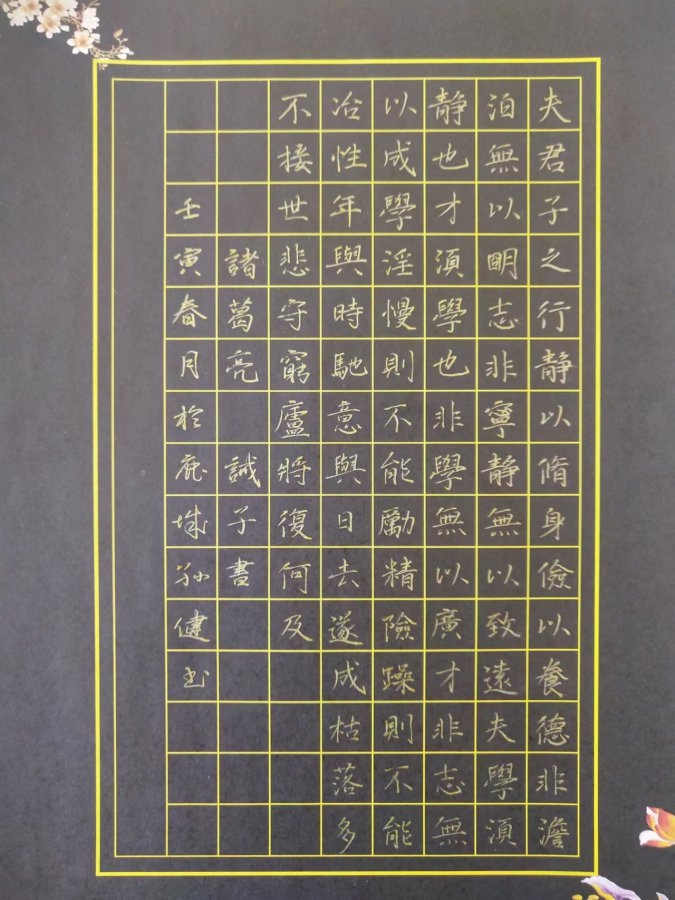 夫君子之行靜以脩身儉以養德非澹
泊無以明志非寧靜無以致遠夫學須
靜也才須學也非學無以廣才非志無
以成學淫慢則不能勵精險躁則不能
冶性年與時馳意與日去遂成枯落多
不接世悲守窮廬將復何及
諸葛亮 誡子書
壬寅春月於鹿城孫健書